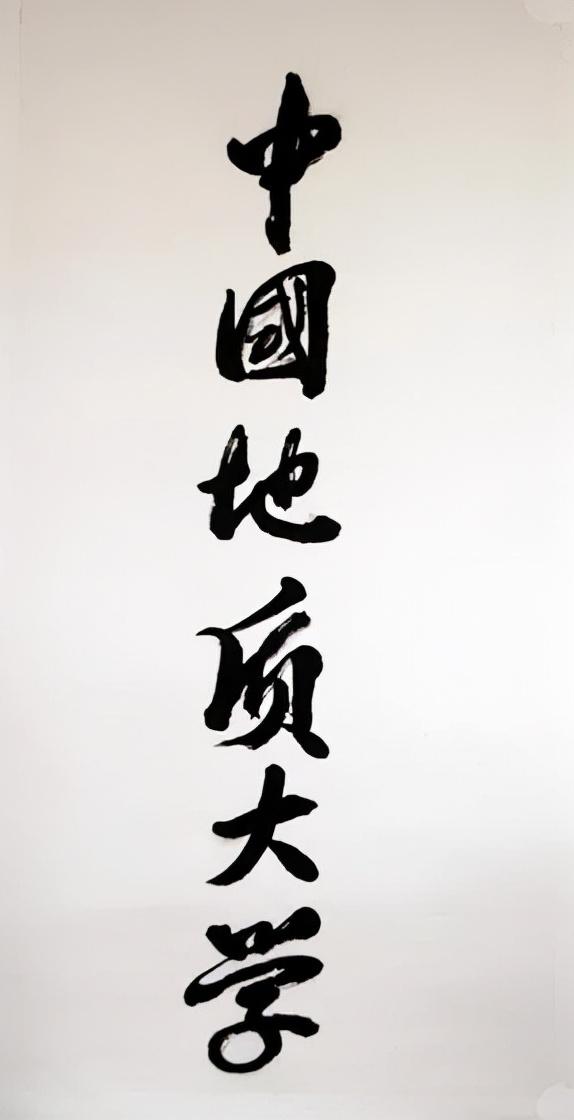 中國地质大学